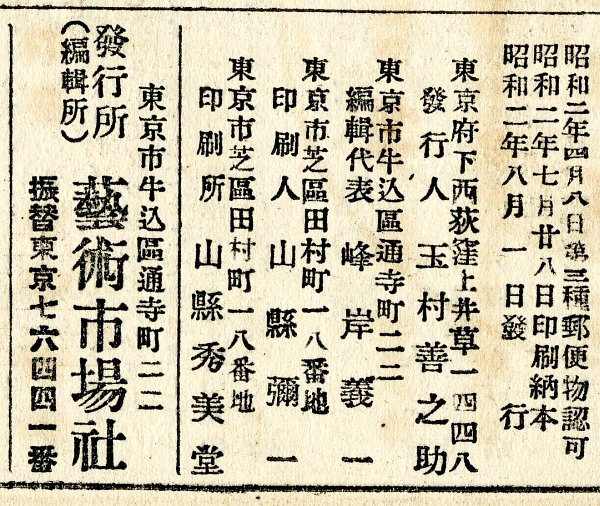 昭和二年四月八日第三種郵便物認可
昭和二年七月廿八日印刷納本
昭和二年八月一日發行
東京府下西荻窪上井草一四四八
發行人 玉村善之助
東京市牛込區通寺町二二
編輯代表 峰岸義一
東京市芝區田村町一八番地
印刷人 山縣彌一
東京市芝區田村町一八番地
印刷所 山縣秀美堂
東京市牛込區通寺町二二
發行所 藝術市場社
(編輯所)
振替東京七六四四一番